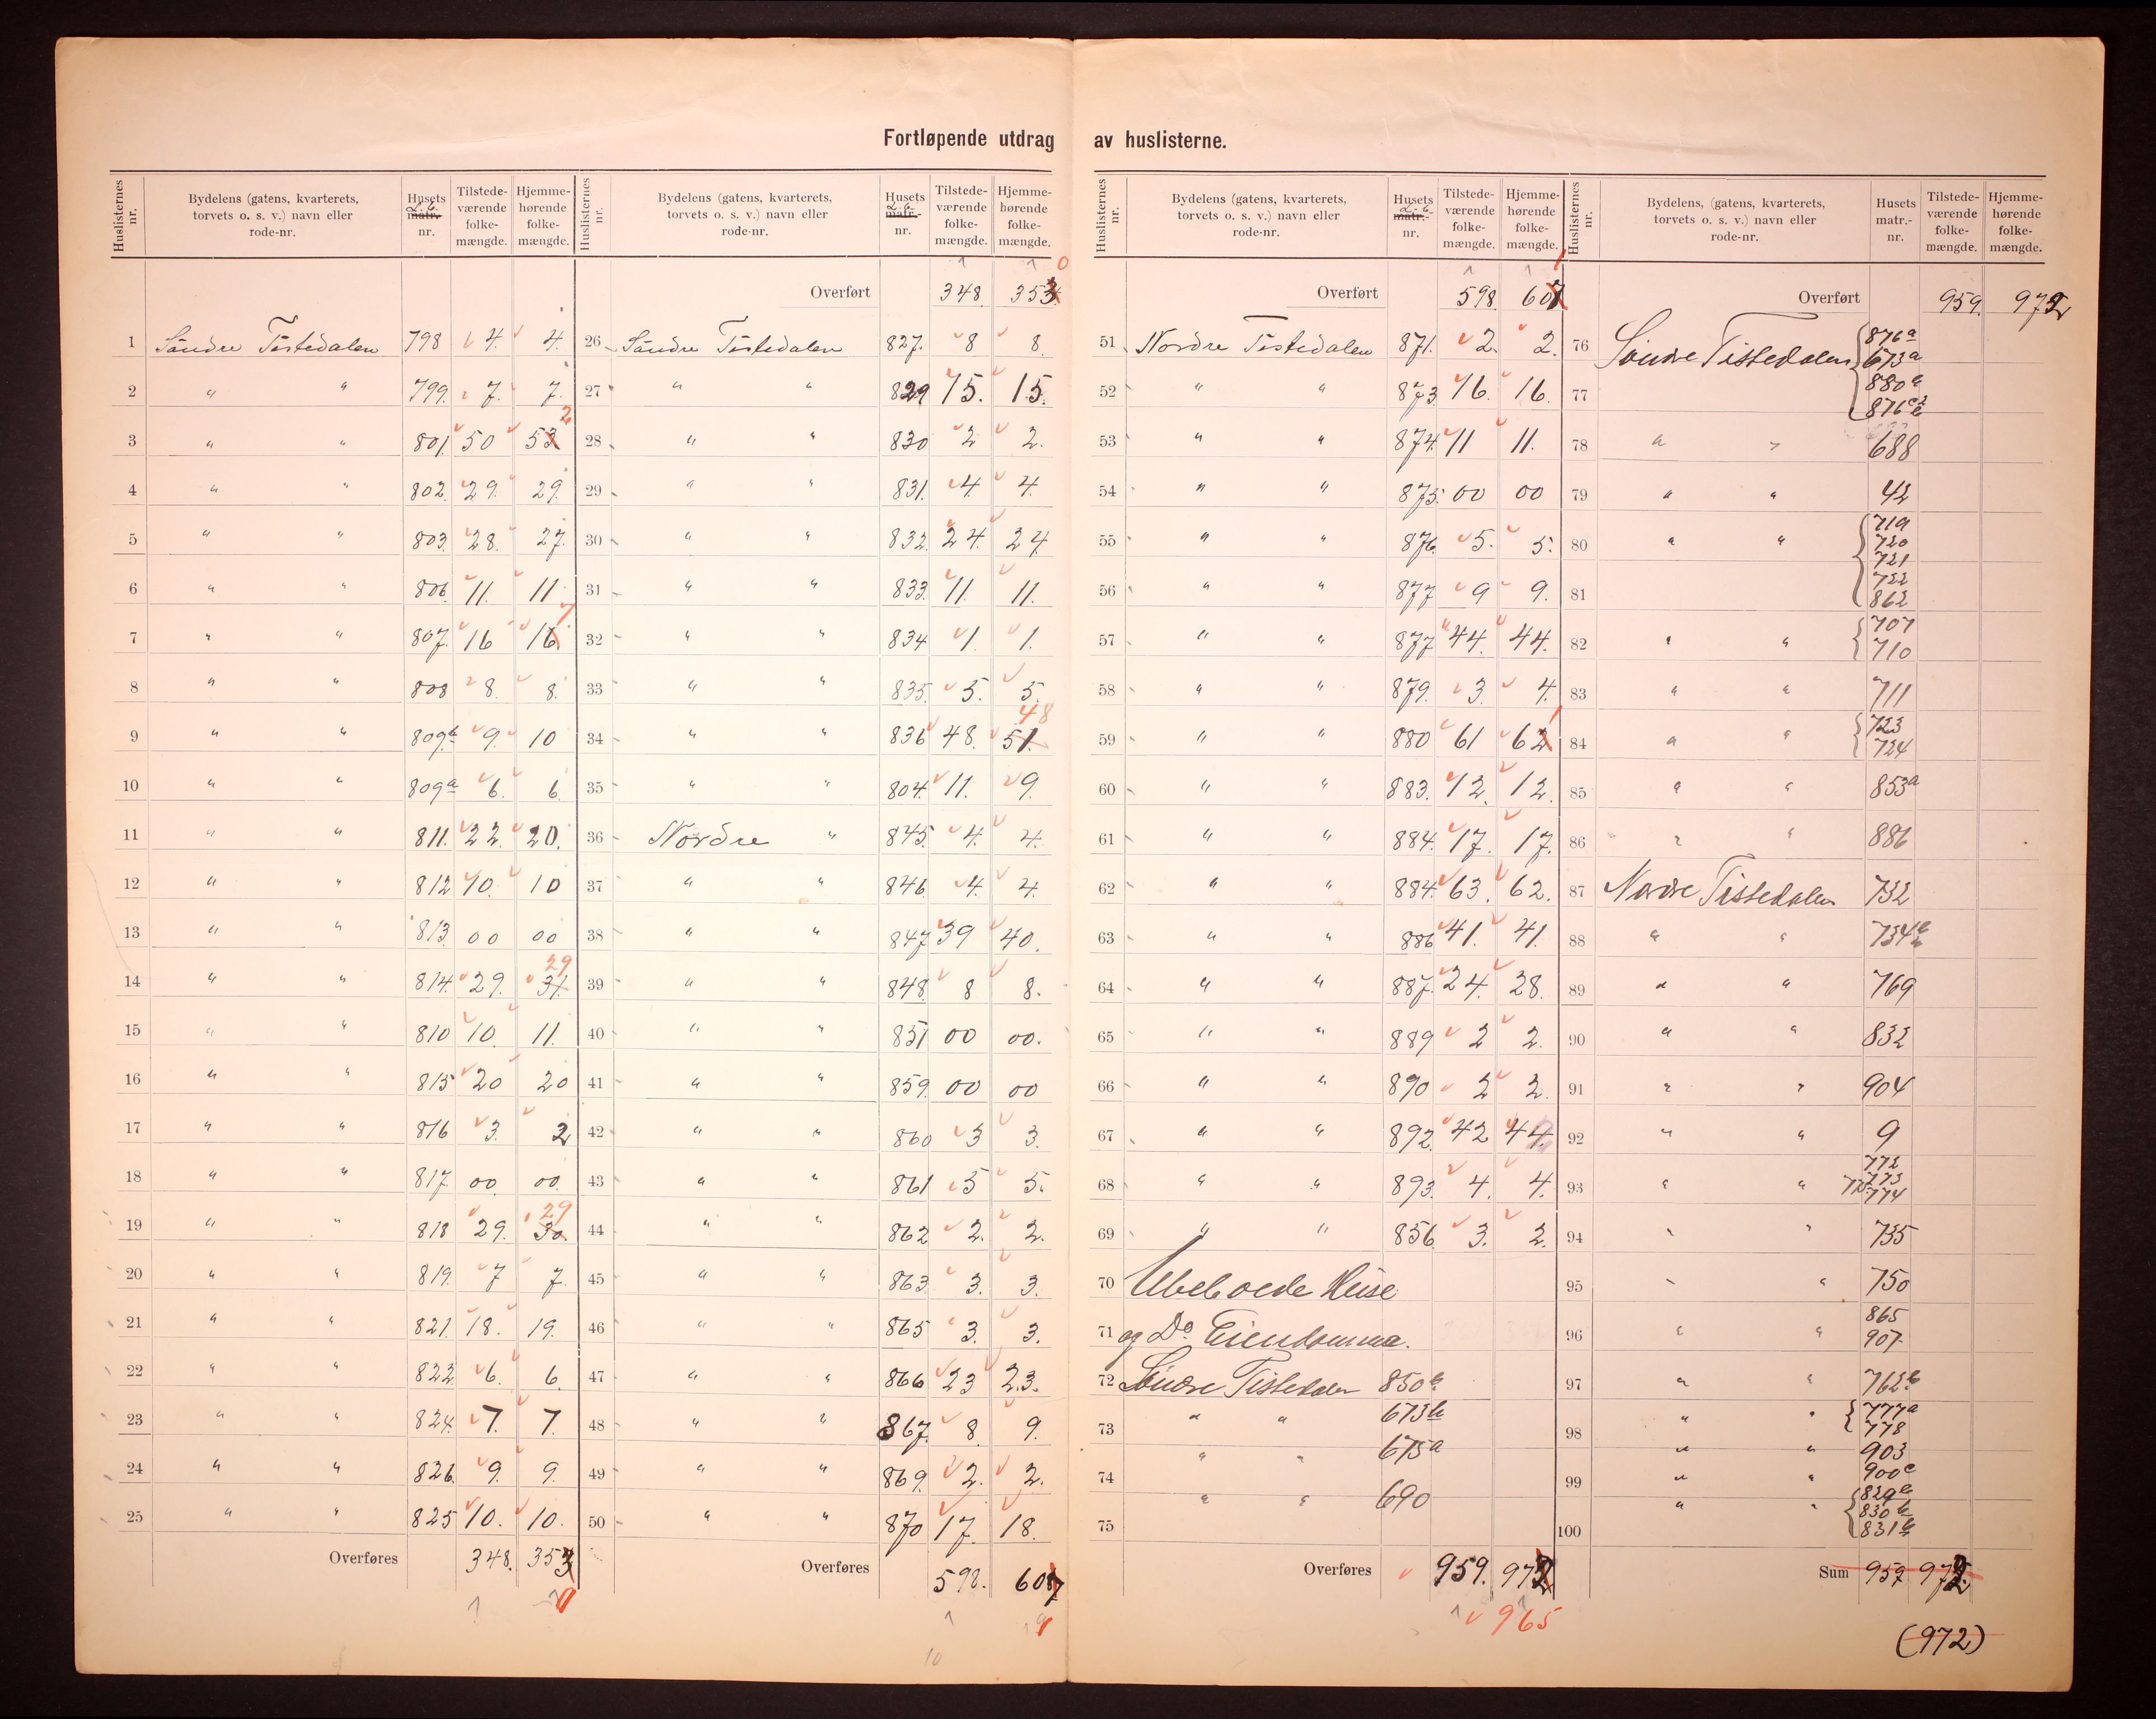 Fortløpende utdrag av huslisterne.
Huslisternes nr. Bydelens (gatens, kvarterets, torvets o. s. v.) navn eller rode-nr. Husets matr.- L. b. nr. Tilstede-værende folke-mængde. Hjemme-hørende folke-mængde.
1 Söndre Tistedalen 798 4. 4.
2 " " 799. 7. 7.
3 " " 801. 50 53 2
4 " " 802. 29. 29.
5 " " 803. 28. 27.
6 " " 806. 11. 11.
7 " " 807. 16 16 7
8 " " 808 8. 8.
9 " " 809b 9. 10
10 " " 809a 6. 6.
11 " " 811. 22. 20.
12 " " 812 10. 10
13 " " 813. 00 00
14 " " 814. 29. 31. 29
15 " " 810 10. 11.
16 " " 815 20 20
17 " " 816 3. 2
18 " " 817. 00. 00.
19 " " 818 29. 30. 29
20 " " 819. 7 7.
21 " " 821. 18. 19.
22 " " 822 6. 6.
23 " " 824. 7. 7.
24 " " 826. 9. 9.
25 " " 825 10. 10.
Overføres 348. 353
Huslisternes nr. Bydelens (gatens, kvarterets, torvets o. s. v.) navn eller rode-nr. Husets matr.- L. b. nr. Tilstede-værende folke-mængde. Hjemme-hørende folke-mængde.
Overført 348. 353 0
26 Söndre Tistedalen 827. 8 8.
27 " " 829 15. 15.
28 " " 830 2 2.
29 " " 831. 4. 4.
30 " " 832. 24. 24.
31 " " 833. 11. 11.
32 " " 834 1. 1.
33 " " 835. 5. 5.
34 " " 836 48. 51. 48
35 " " 804. 11. 9.
36 Nordre " 845. 4. 4.
37 " " 846 4. 4.
38 " " 847 39 40.
39 " " 848. 8 8.
40 " " 851 00 00.
41 " " 859. 00 00
42 " " 860 3 3.
43 " " 861 5 5.
44 " " 862 2. 2.
45 " " 863. 3. 3.
46 " " 865 3. 3.
47 " " 866 23 23.
48 " " 867. 8. 9.
49 " " 869. 2. 2.
50 " " 870 17. 18.
Overføres 598. 607
10
Huslisternes nr. Bydelens (gatens, kvarterets, torvets o. s. v.) navn eller rode-nr. Husets matr.- L. b. nr. Tilstede-værende folke-mængde. Hjemme-hørende folke-mængde.
Overført 598. 607 1
51 Nordre Tistedalen 871. 2. 2.
52 " " 873 16. 16.
53 " " 874. 11 11.
54 " " 875. 00 00
55 " " 876. 5. 5.
56 " " 877 9 9.
57 " " 877 44. 44.
58 " " 879. 3. 4.
59 " " 880 61 62 1
60 " " 883. 12. 12.
61 " " 884. 17. 17.
62 " " 884. 63. 62.
63 " " 886 41. 41.
64 " " 887. 24. 28.
65 " " 889 2 2.
66 " " 890 2 2.
67 " " 892. 42 44.
68 " " 893. 4. 4.
69 " " 856 3. 2.
70 Ubeboede Huse
71 og Do Eiendomme.
72 Söndre Tistedalen 850b
73 " " 673b
" " 675a
74
" " 690
75
Overføres 959. 972
965
Huslisternes nr. Bydelens, (gatens, kvarterets, torvets o. s. v.) navn eller rode-nr. Husets matr.-nr. Tilstede-værende folke-mængde. Hjemme-hørende folke-mængde.
Overført 959. 972
76 Söndre Tistedalen 876a
673a
77 880b
78 " " 688
79 " " 42
80 " " 719
720
721
81 722
862
82 " " 707
710
83 " " 711
84 " " 723
724
85 " " 853a
86 " " 886
87 Nordre Tistedalen 732
88 " "
89 " " 769
90 " " 832
91 " " 904
92 " " 9
93 " " 772
773
774
94 " " 735
95 " " 750
96 " " 865
907
97 " " 762b
98 " " 777a
778
" " 903
99 " " 900c
" " 829b
830b
100 831b
Sum 959 972
(972)